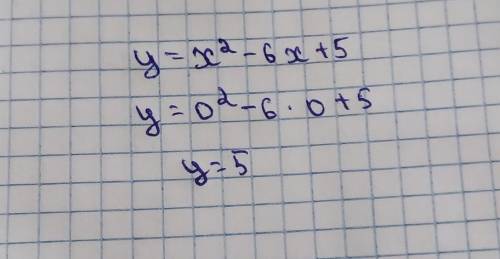 y = x² - 6x + 5
y = 0² - 6 · 0 + 5
y = 5